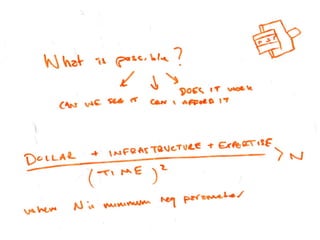 What is possible?
CAN WE SEE IT CAN I AFFORD IT DOES IT WORK
DOLLAR + INFRASTRUCTURE + EXPERTISE > N
(TIME)²
where N is minimum req parameter